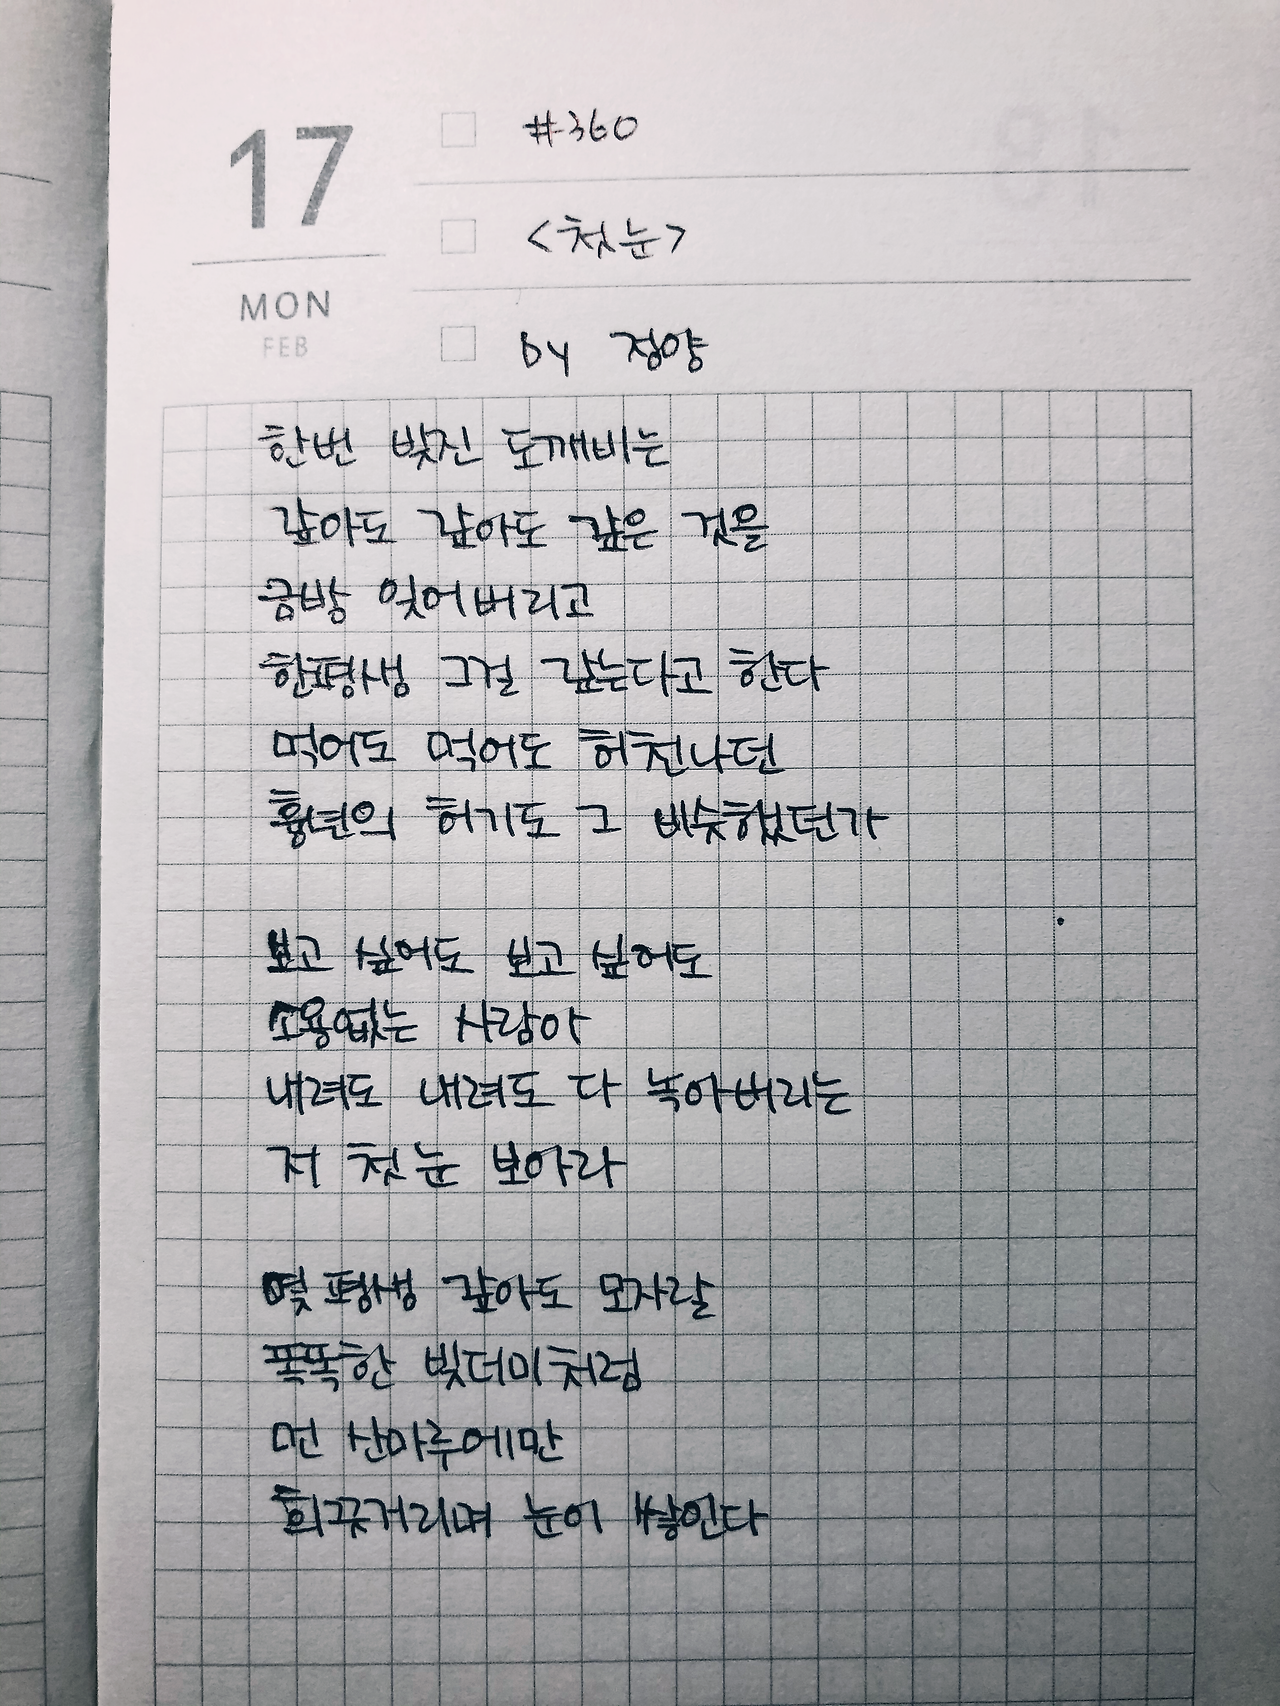 17
MON
FEB
#360
<첫눈>
by 정양
한번 빚진 도깨비는
갚아도 갚아도 갚은 것을
금방 잊어버리고
한평생 그걸 갚는다고 한다
먹어도 먹어도 허천나던
흉년의 허기도 그 비슷했던가
보고 싶어도 보고 싶어도
소용없는 사람아
내려도 내려도 다 녹아버리는
저 첫눈 보아라
몇 평생 갚아도 모자랄
폭폭한 빚더미처럼
먼 산마루에만
희끗거리며 눈이 쌓인다